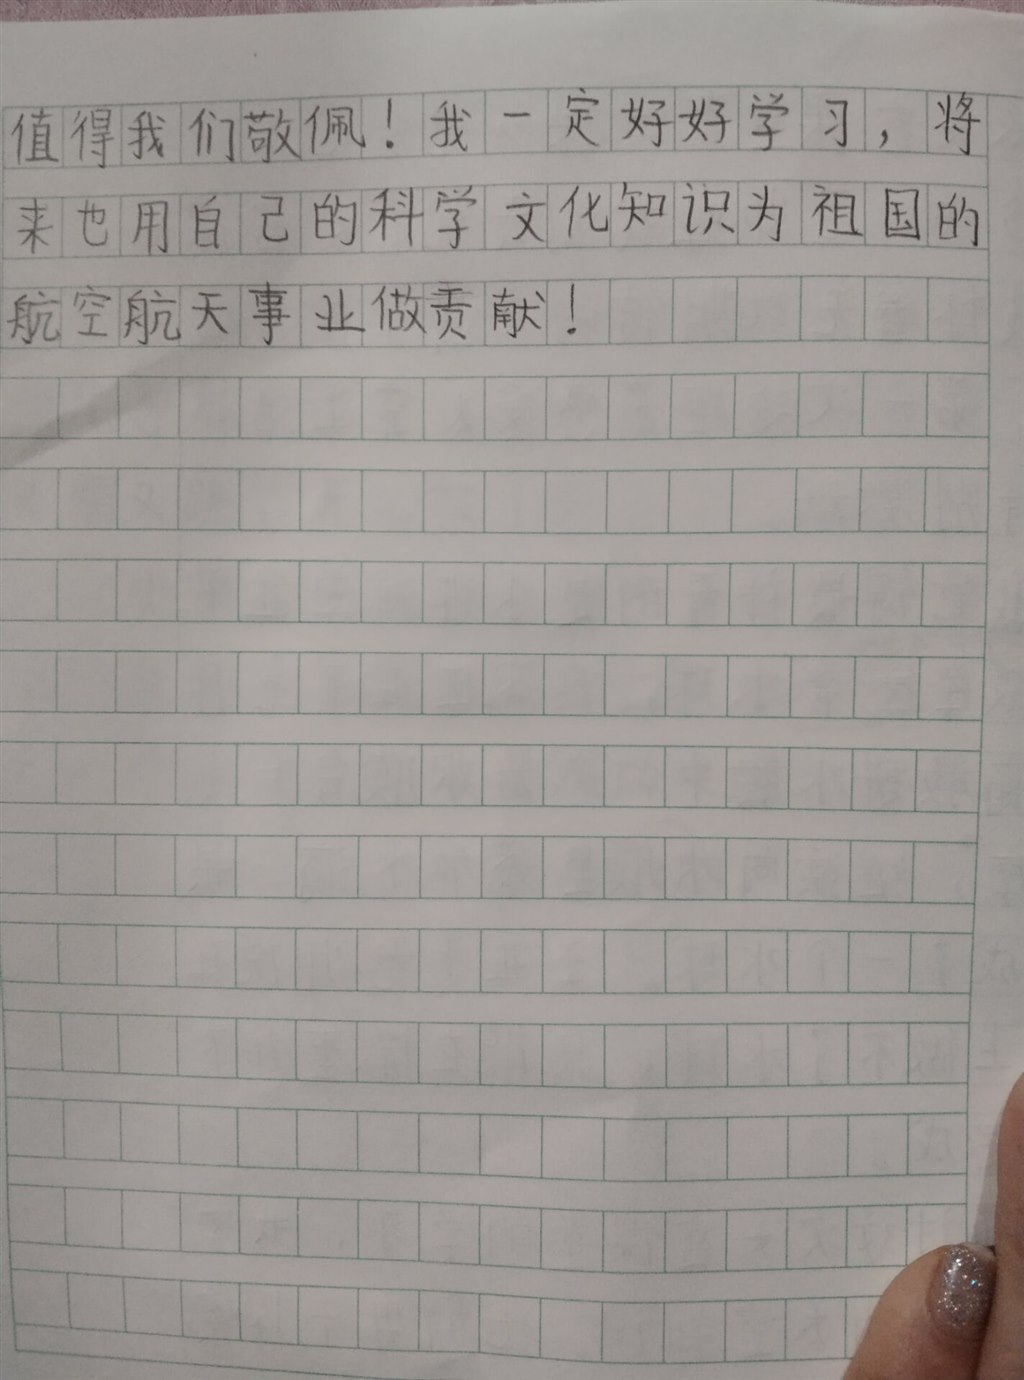 值得我们敬佩！我一定好好学习，将
来也用自己的科学文化知识为祖国的
航空航天事业做贡献！